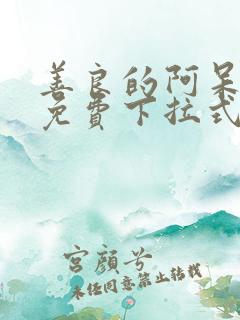 善良的阿呆
免費下拉式
宮顏兮
未经同意禁止转载